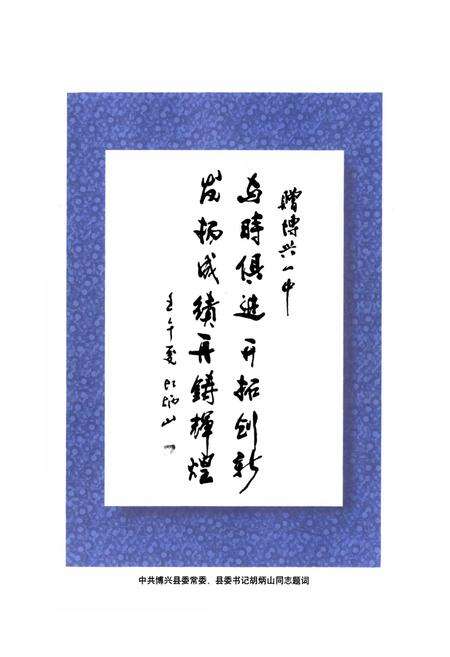 赠博兴一中
与時俱進开拓创新
发扬成績再鑄輝煌
壬午夏 胡炳山
中共博兴县委常委、县委书记胡炳山同志题词